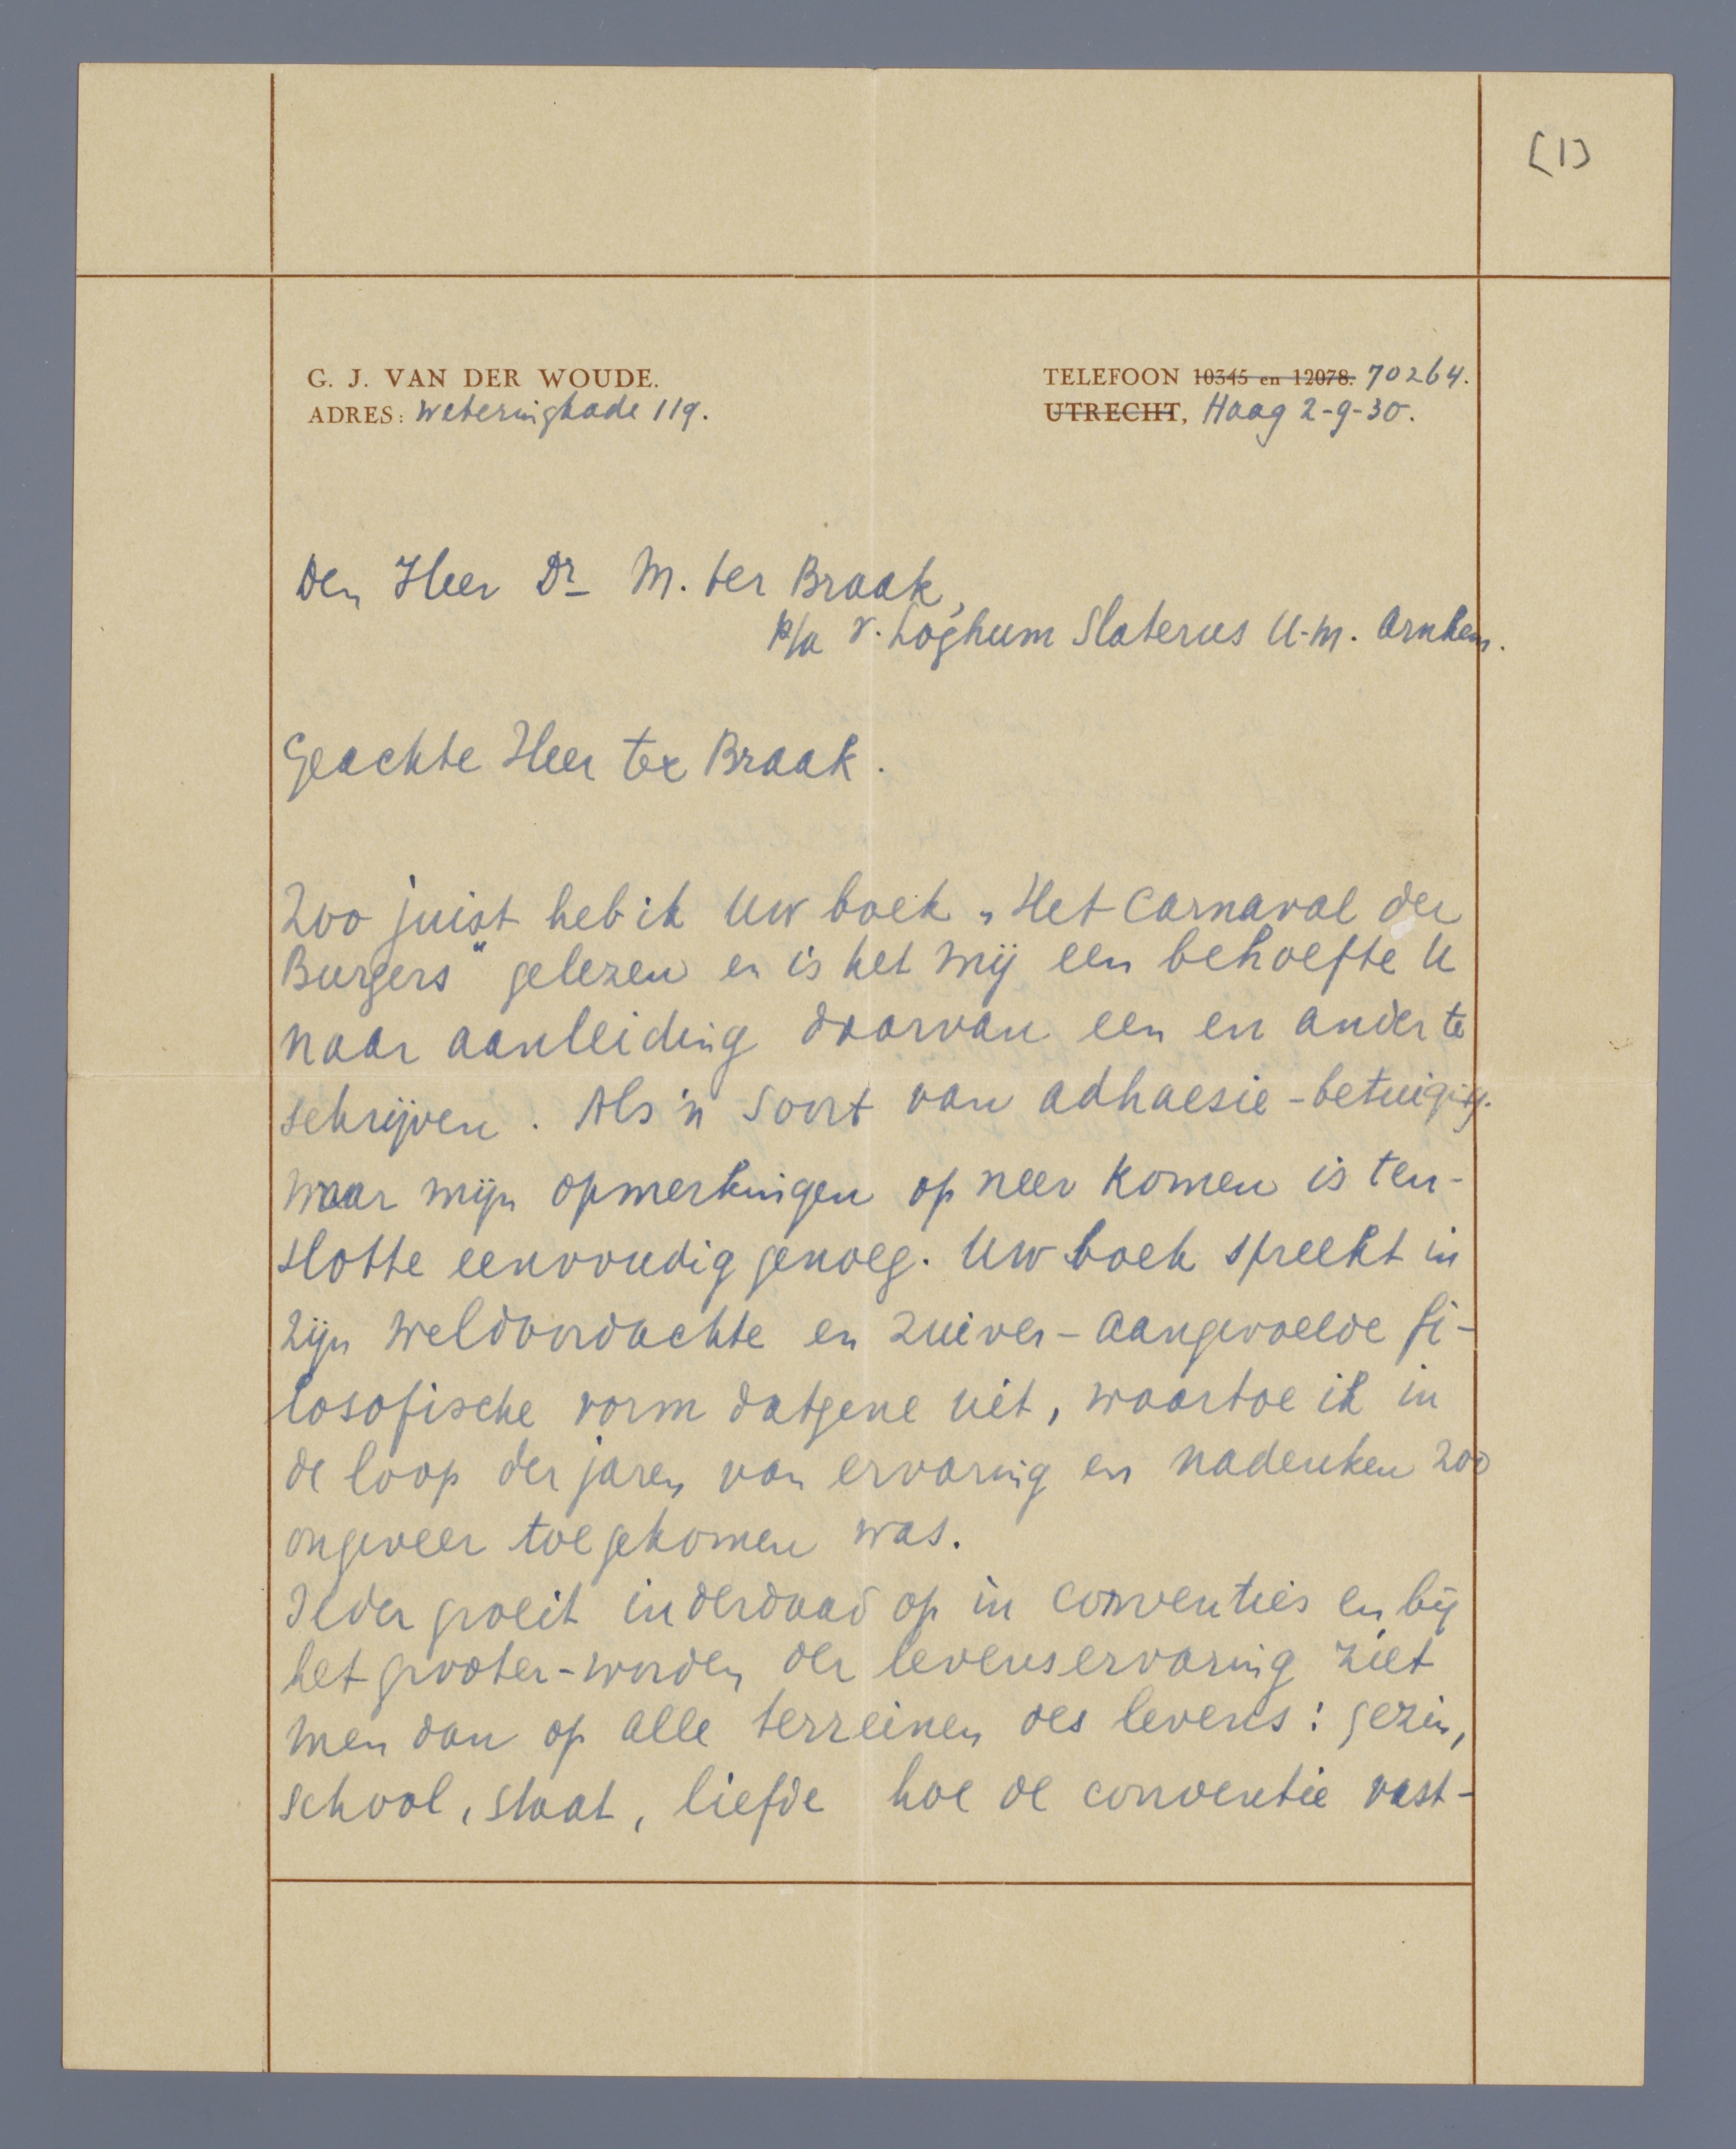 [1]
G. J. VAN DER WOUDE.
ADRES: Weteringkade 119.
TELEFOON 10345 en 12078. 70264.
UTRECHT, Haag 2-9-30.
Den Heer Dr M. ter Braak,
p/a v. Loghum Slaterus U.M. Arnhem.
Geachte Heer ter Braak.
Zoo juist heb ik Uw boek „Het Carnaval der
Burgers" gelezen en is het mij een behoefte U
naar aanleiding daarvan een en ander te
schrijven. Als 'n soort van adhaesie-betuiging.
Waar mijn opmerkingen op neer komen is ten-
slotte eenvoudig genoeg. Uw boek spreekt in
zijn weldoordachte en zuiver-aangevoelde fi-
losofische vorm datgene uit, waartoe ik in
de loop der jaren van ervaring en nadenken zoo
ongeveer toegekomen was.
Ieder groeit inderdaad op in conventies en bij
het grooter-worden der levenservaring ziet
men dan op alle terreinen des levens: gezin,
school, staat, liefde hoe de conventie vast-